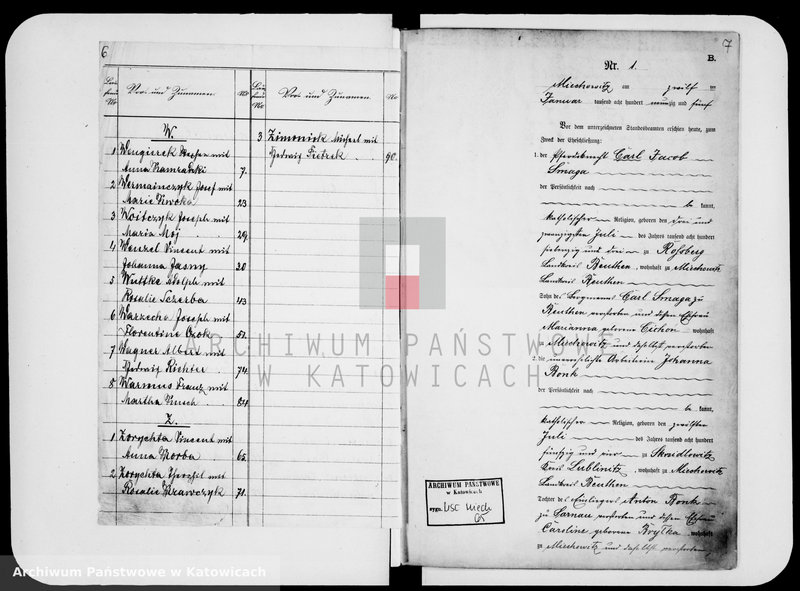 6
Vor- und Zunamen
No
Vor- und Zunamen
No
W.
1 mit
Anna 7.
2 Josef mit
Marie 23
3 Woitczyk Joseph mit
Maria Moj 29.
4 Wenzel Vincent mit
Johanna Jasny 30
5 Wuttke Adolph mit
Rosalie Sczerba 43
6 Warzecha Joseph mit
Florentine 51.
7 Wagner Albert mit
Hedwig Richter 74.
8 Warmus Franz mit
Martha 84.
Z.
1 Zorychta Vincent mit
Anna 65.
2 Zorychta mit
Rosalie Krawczyk 71.
3 Michael mit
Hedwig Pietrek 90.
7
B.
Nr. 1.
Miechowitz am zwölf ten
Januar tausend acht hundert neunzig und fünf
Vor dem unterzeichneten Standesbeamten erschien heute, zum
Zweck der Eheschließung:
1. der Pferdeknecht Carl Jacob
Smaga
der Persönlichkeit nach
be kannt,
katholischer Religion, geboren den drei und
zwanzigsten Juli des Jahres tausend acht hundert
siebenzig und drei zu Roßberg
Landkreis Beuthen, wohnhaft zu Miechowitz
Landkreis Beuthen
Sohn des Bergmanns Carl Smaga zu
Beuthen verstorben und dessen Ehefrau
Marianna geborene Cichon wohnhaft
zu Miechowitz und daselbst verstorben
2. die unverehelichte Arbeiterin Johanna
Bonk
der Persönlichkeit nach
be kannt,
katholischer Religion, geboren den zwölften
Juli des Jahres tausend acht hundert
und vier zu
Kreis Lublinitz, wohnhaft zu Miechowitz
Landkreis Beuthen
Tochter des Einliegers Anton Bonk
zu verstorben und dessen Ehefrau
Caroline geborene Brylka wohnhaft
zu Miechowitz und daselbst verstorben
ARCHIWUM PAŃSTWOWE
w Katowicach
sygn. USC Miech
ARCHIWUM PAŃSTWOWE
W KATOWICACH
Archiwum Państwowe w Katowicach